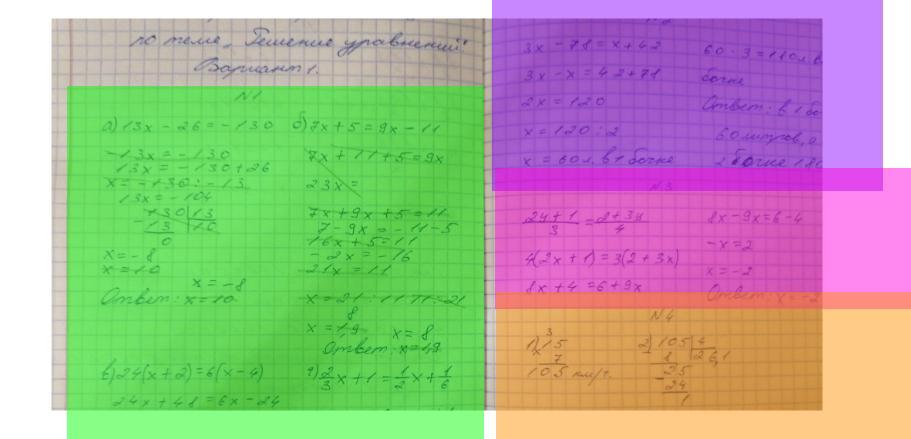 по теме „Решение уравнений".
Вариант 1.
N1
а) 13x - 26 = -130
-13x = -130
13x = -130 + 26
x = -130 : -13
13x = -104
130 | 13
13 | 10
0
x = -8
x = 10
x = -8
Ответ: x = 10
б) 7x + 5 = 9x - 11
7x + 11 + 5 = 9x
23x =
7x + 9x + 5 = 11
7 - 9x = -11 - 5
16x + 5 = 11
-2x = -16
21x = 11
x = 21 : 11 11 : 21
8
x = 1,9 x = 8
Ответ: x = 1,9
в) 24(x + 2) = 6(x - 4)
24x + 48 = 6x - 24
г) 2/3 x + 1 = 1/2 x + 1/6
3x - 78 = x + 42
3x - x = 42 + 78
2x = 120
x = 120 : 2
x = 60 л. в 1 бочке
60 · 3 = 180 л. в
бочке
Ответ: в 1 бо
60 литров, а
2 бочке 180
N3
2y + 1 / 3 = 2 + 3y / 4
4(2x + 1) = 3(2 + 3x)
8x + 4 = 6 + 9x
8x - 9x = 6 - 4
-x = 2
x = -2
Ответ: x = -2
N4
1) 3
x 15
7
105 км/ч.
2) 105 | 4
8 | 26,1
25
24
1